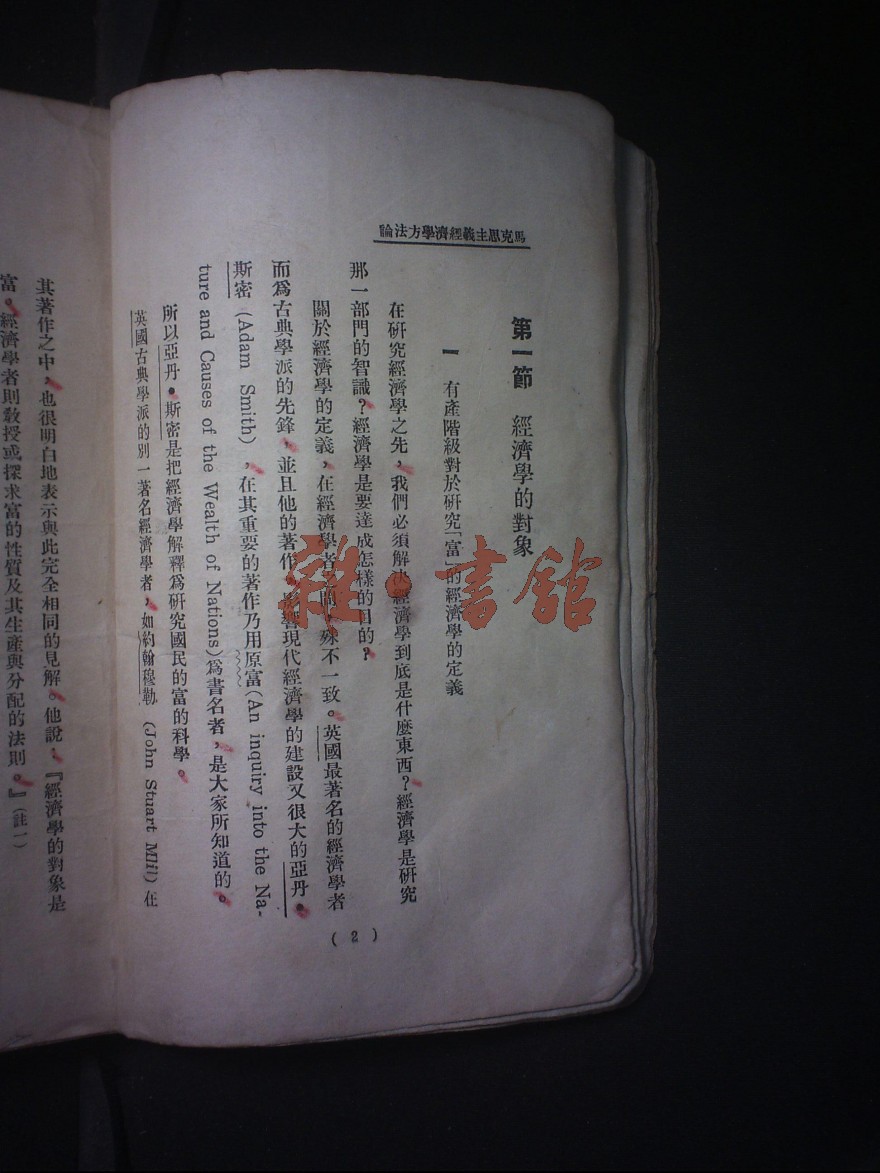 馬克思主義經濟學方法論
第一節　經濟學的對象
一　有產階級對於研究「富」的經濟學的定義
在研究經濟學之先，我們必須解決經濟學到底是什麼東西？經濟學是研究
那一部門的智識？經濟學是要達成怎樣的目的？
關於經濟學的定義，在經濟學者之間，殊不一致。英國最著名的經濟學者
而爲古典學派的先鋒，並且他的著作，影響現代經濟學的建設又很大的亞丹•
斯密（Adam Smith），在其重要的著作乃用原富（An inquiry into the Na-
ture and Causes of the Wealth of Nations）爲書名者，是大家所知道的。
所以亞丹•斯密是把經濟學解釋爲研究國民的富的科學。
英國古典學派的別一著名經濟學者，如約翰穆勒（John Stuart Mlil）在
其著作之中，也很明白地表示與此完全相同的見解。他說：『經濟學的對象是
富。經濟學者則教授或探求富的性質及其生產與分配的法則。』（註一）
（2）
雜•書館